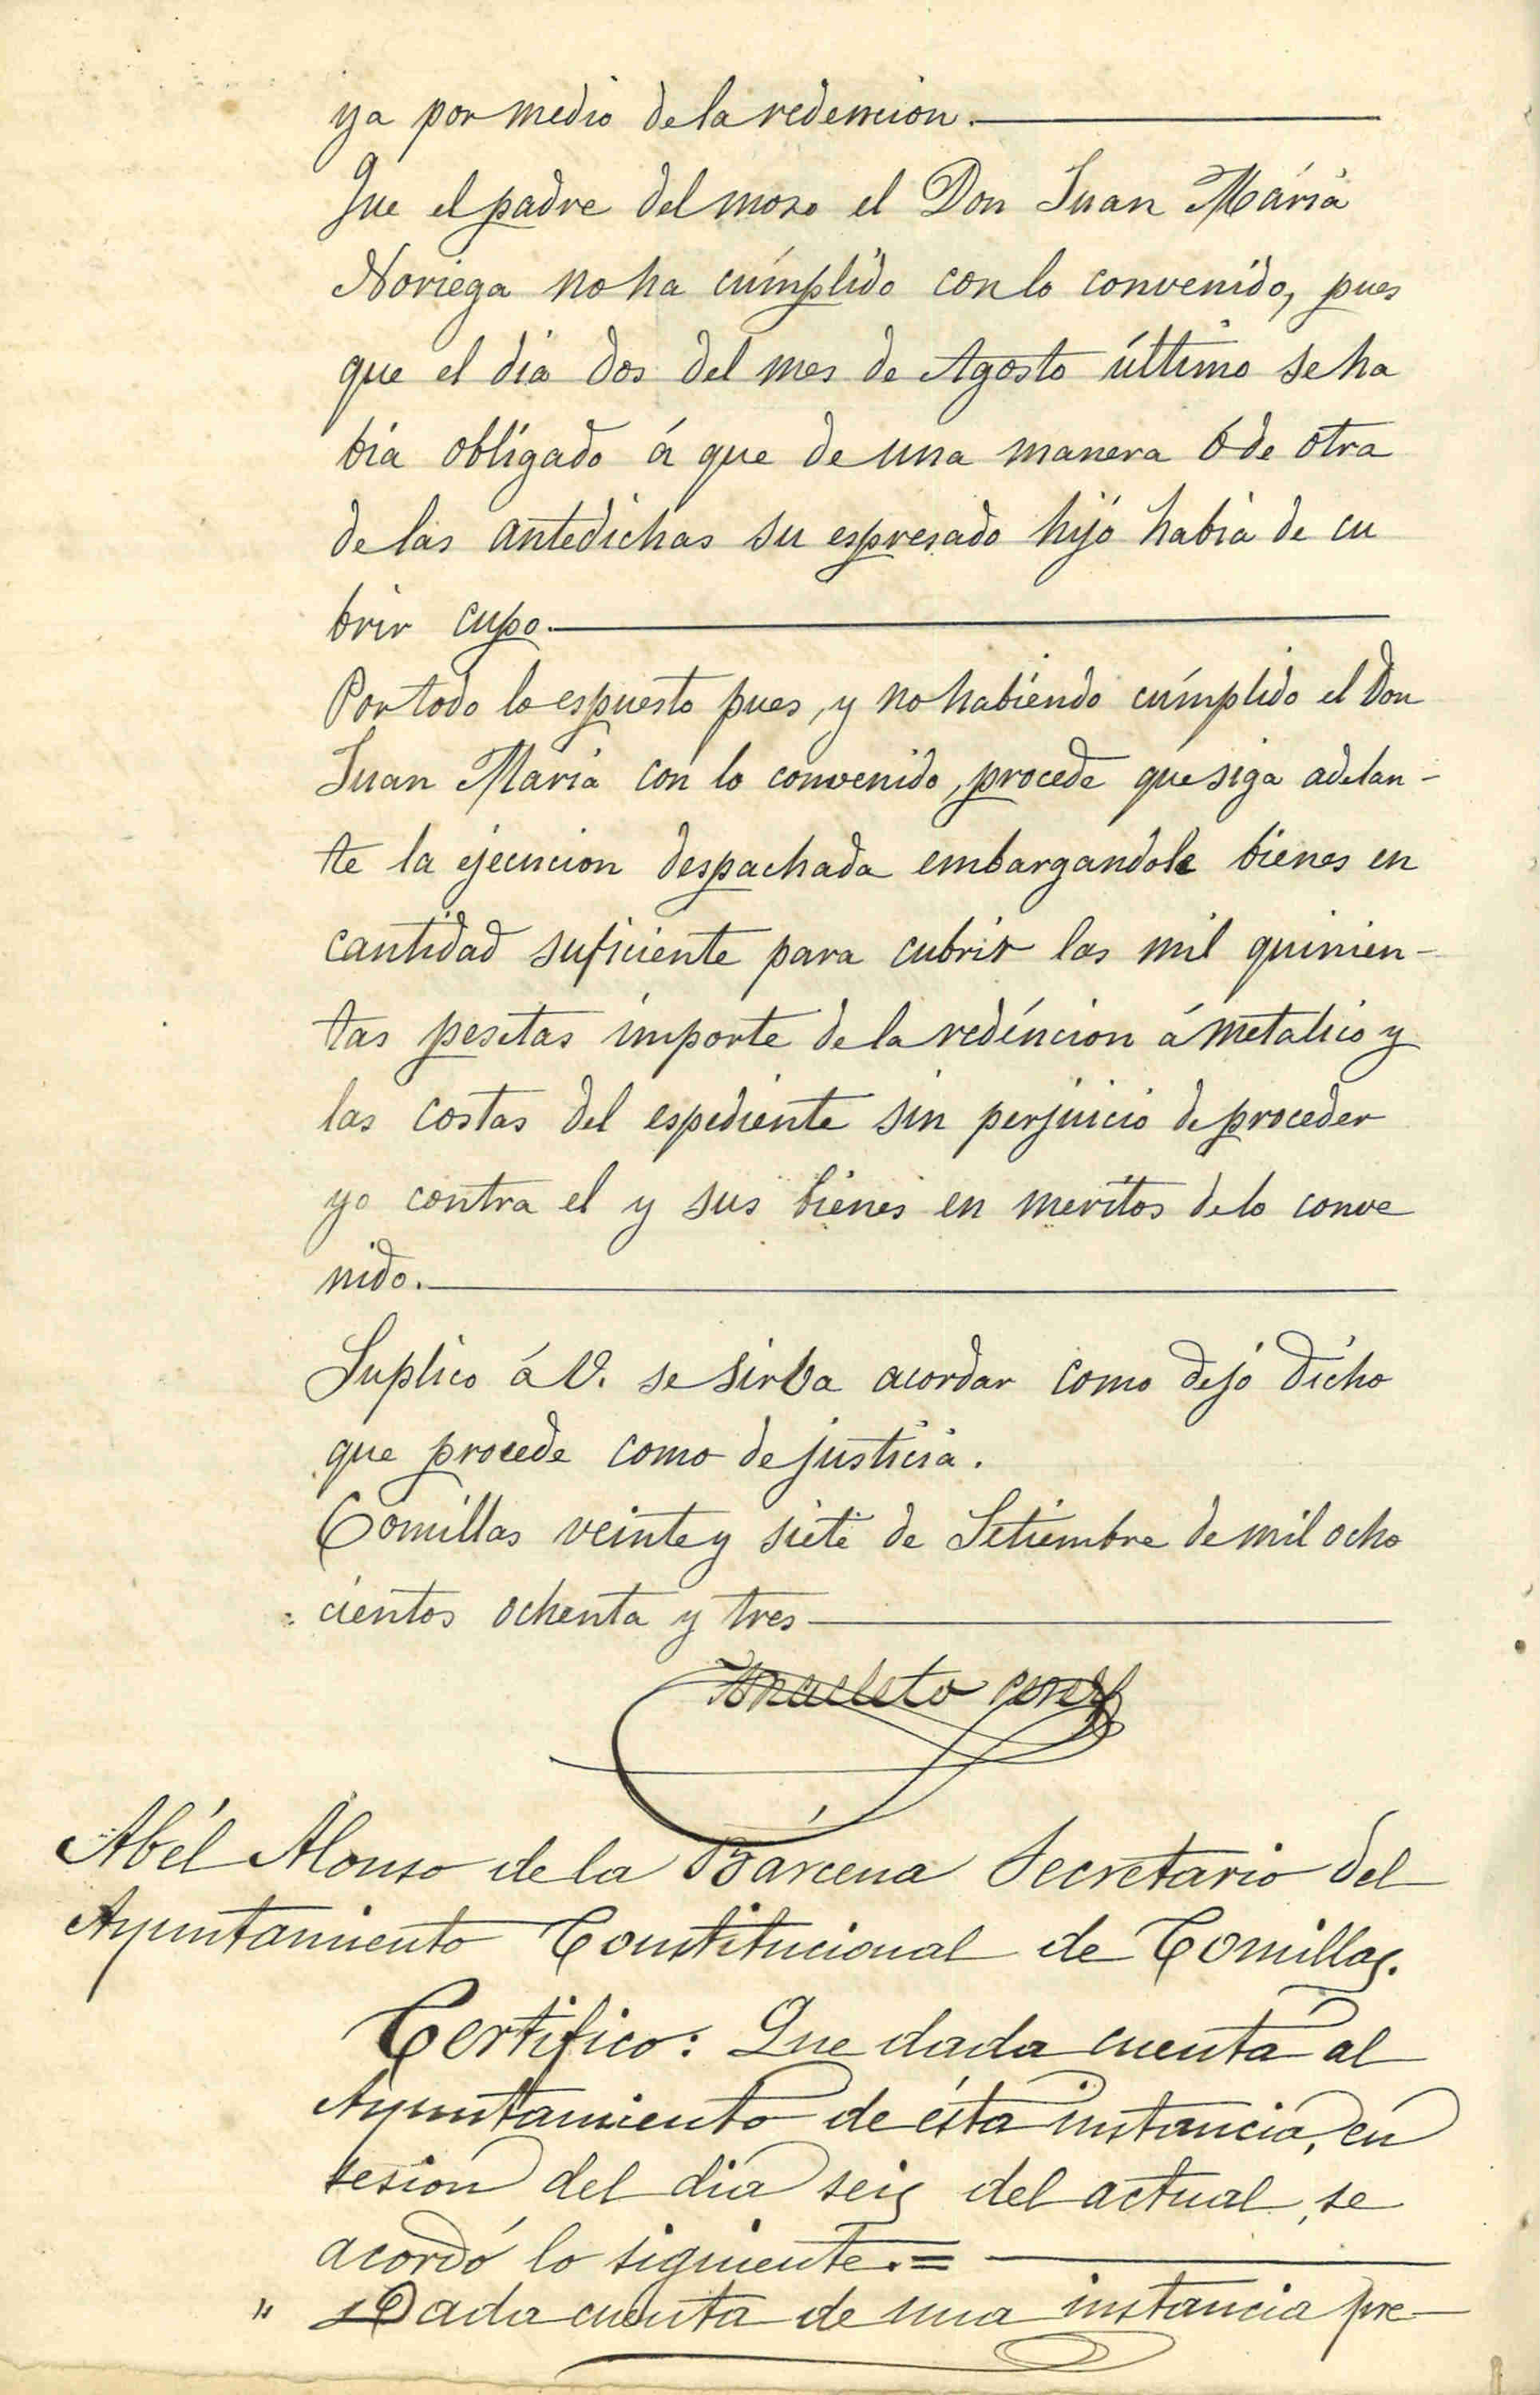 ya por medio de la redencion.
Que el padre del mozo el Don Juan Maria
Noriega no ha cumplido con lo convenido, pues
que el dia dos del mes de Agosto último se ha
bia obligado á que de una manera ó de otra
de las antedichas su espresado hijo habia de cu
brir cupo.
Por todo lo espuesto pues, y no habiendo cumplido el Don
Juan Maria con lo convenido, procede que siga adelan-
te la ejecucion despachada embargandole bienes en
cantidad suficiente para cubrir las mil quinien-
tas pesetas importe de la redencion á metalico y
las costas del espediente sin perjuicio de proceder
yo contra el y sus bienes en meritos de lo conve
nido.
Suplico á V. se sirba acordar como dejo dicho
que procede como de justicia.
Comillas veinte y siete de Setiembre de mil ocho
cientos ochenta y tres
Anacleto
Abél Alonso de la Bárcena Secretario del
Ayuntamiento Constitucional de Comillas.
Certifico: Que dada cuenta al
Ayuntamiento de ésta instancia, en
sesion del dia seis del actual, se
acordó lo siguiente.=
" Dada cuenta de una instancia pre-